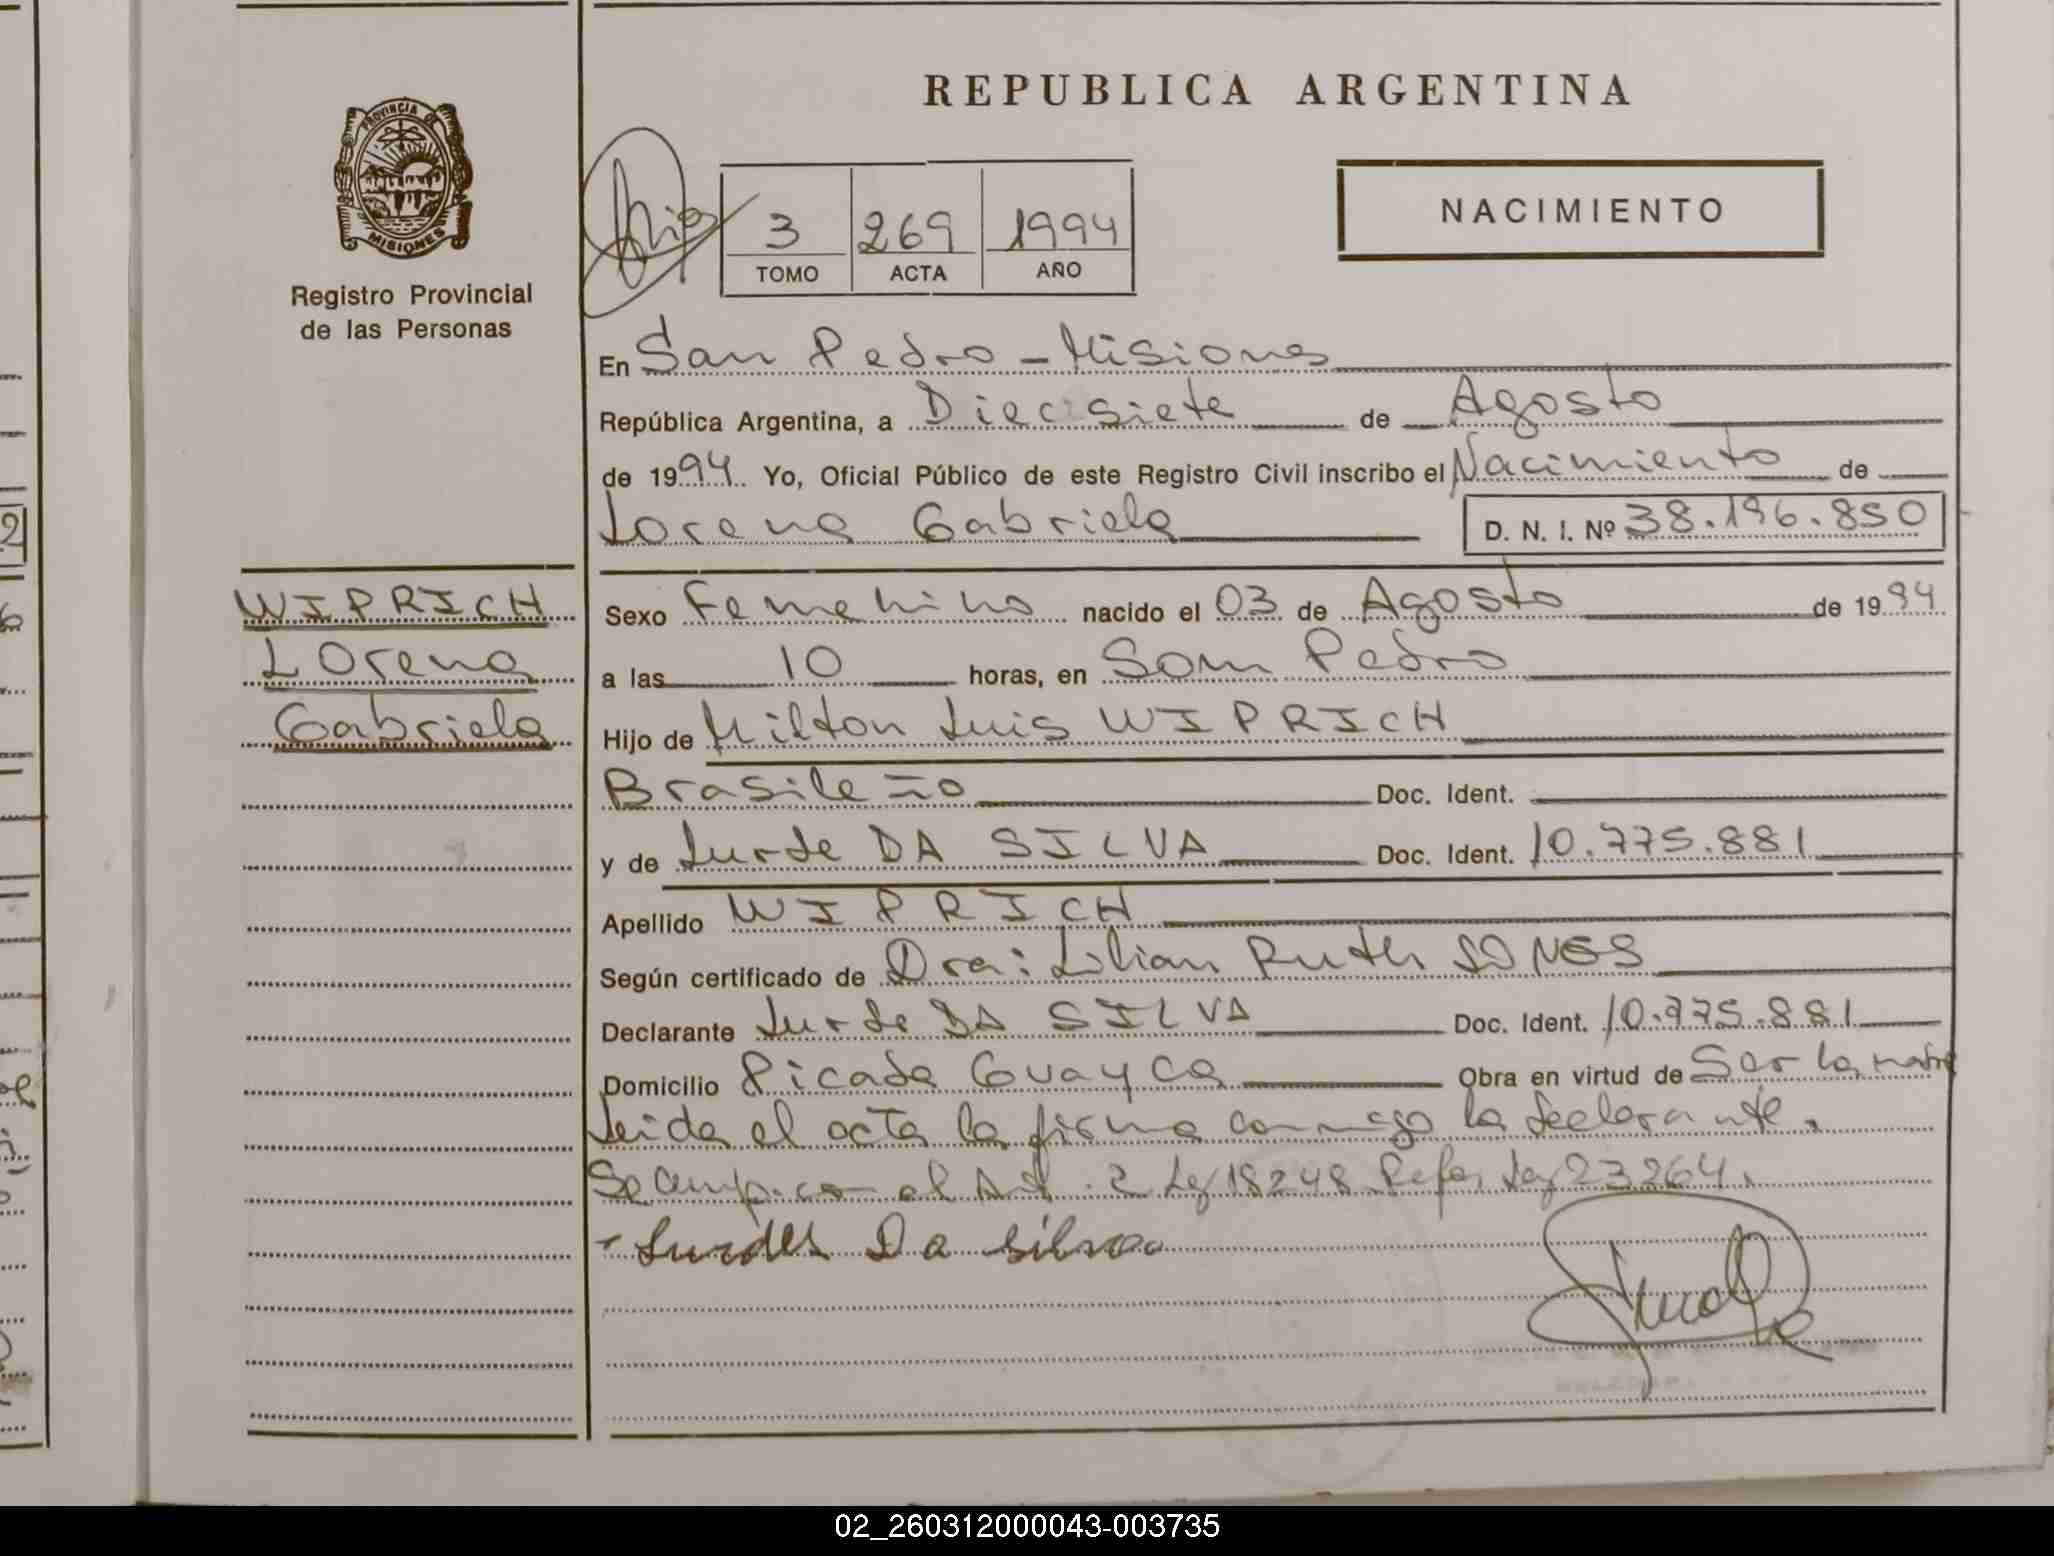 REPUBLICA ARGENTINA
PROVINCIA DE
MISIONES
Registro Provincial
de las Personas
3 269 1994
TOMO ACTA AÑO
NACIMIENTO
En San Pedro - Misiones
República Argentina, a Diecisiete de Agosto
de 1994 Yo, Oficial Público de este Registro Civil inscribo el Nacimiento de
Lorena Gabriela D. N. I. Nº 38.196.850
WIPRICH
Lorena
Gabriela
Sexo Femenino nacido el 03 de Agosto de 1994
a las 10 horas, en San Pedro
Hijo de Milton Luis WIPRICH
Brasileño Doc. Ident.
y de Lurde DA SILVA Doc. Ident. 10.775.881
Apellido WIPRICH
Según certificado de Dra: Lilian Ruth
Declarante Lurde DA SILVA Doc. Ident. 10.775.881
Domicilio Picada Guayca Obra en virtud de Ser la madre
Leida el acta la firma conmigo la declarante.
Se cumplio con el Art. 2 Ley 18248 Refor Ley 23264.
- Lurdes Da Silva
02_260312000043-003735